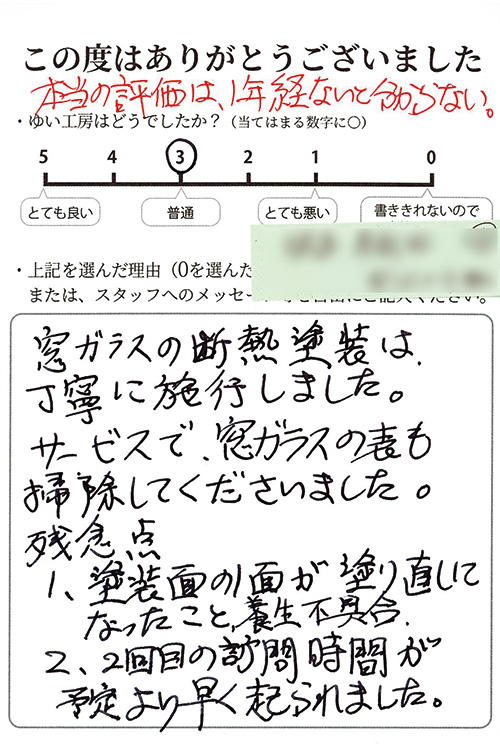 この度はありがとうございました
本当の評価は、1年経ないと分からない。
・ゆい工房はどうでしたか？（当てはまる数字に○）
5 4 3 2 1 0
とても良い 普通 とても悪い 書ききれないので
・上記を選んだ理由（0を選んだ
または、スタッフへのメッセー
窓ガラスの断熱塗装は、
丁寧に施行しました。
サービスで、窓ガラスの表も
掃除してくださいました。
残念点
1、塗装面の1面が塗り直しに
なったこと、養生不具合.
2、2回目の訪問時間が
予定より早く起られました。